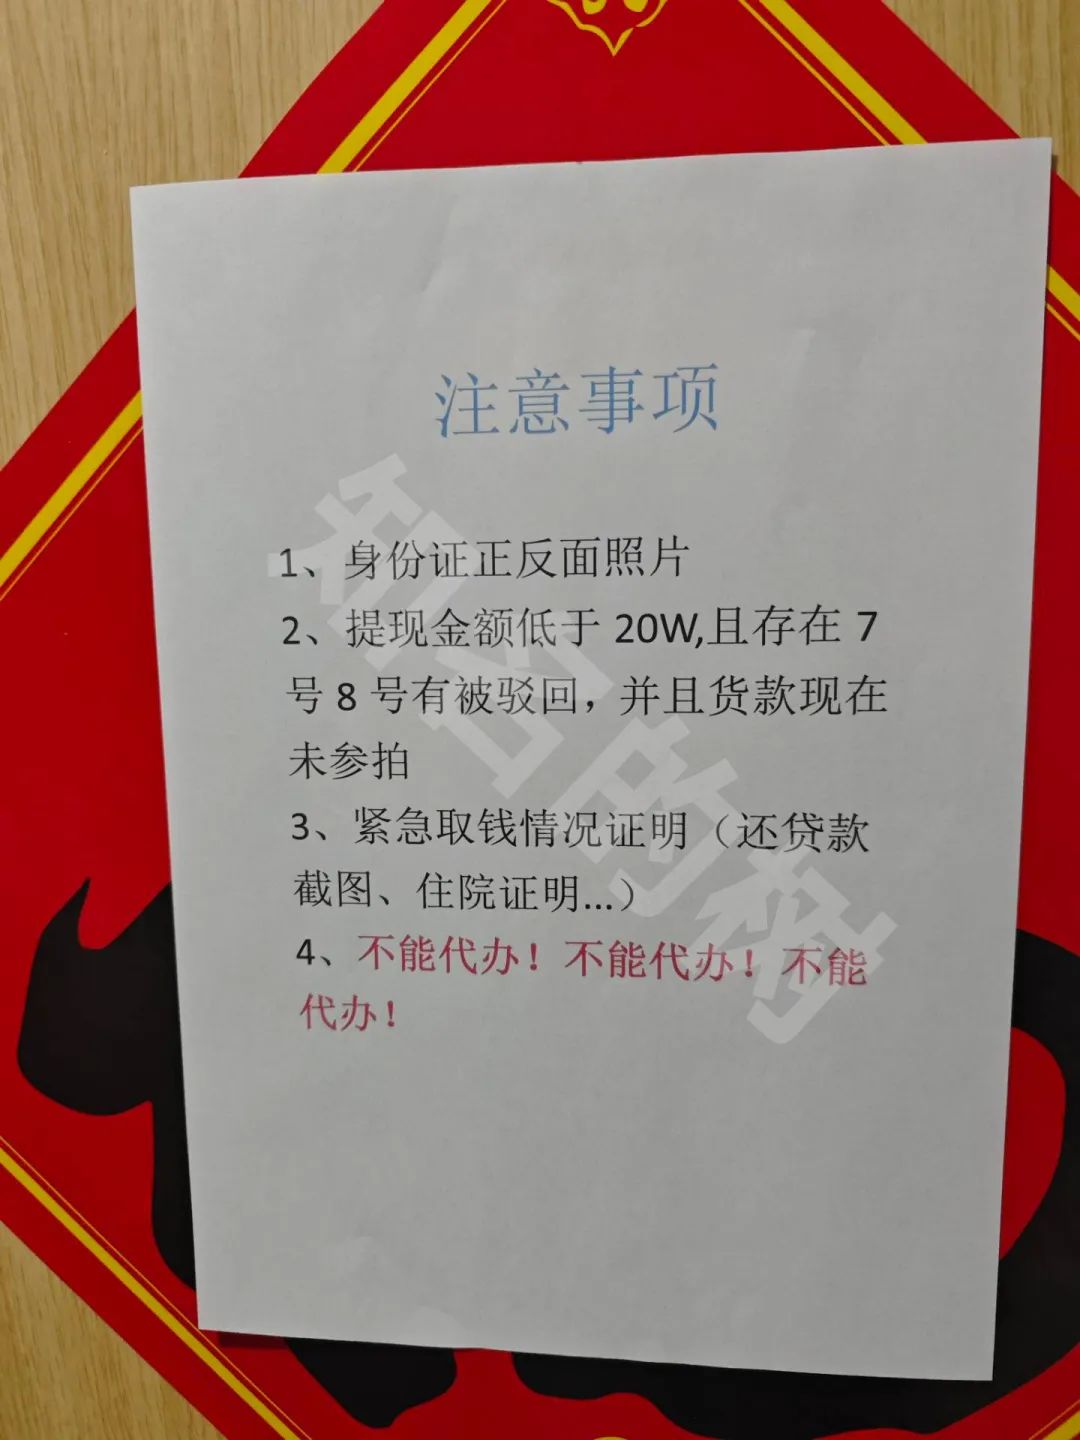 注意事项
1、身份证正反面照片
2、提现金额低于 20W,且存在 7
号 8 号有被驳回，并且货款现在
未参拍
3、紧急取钱情况证明（还贷款
截图、住院证明...）
4、不能代办！不能代办！不能
代办！
知名的树